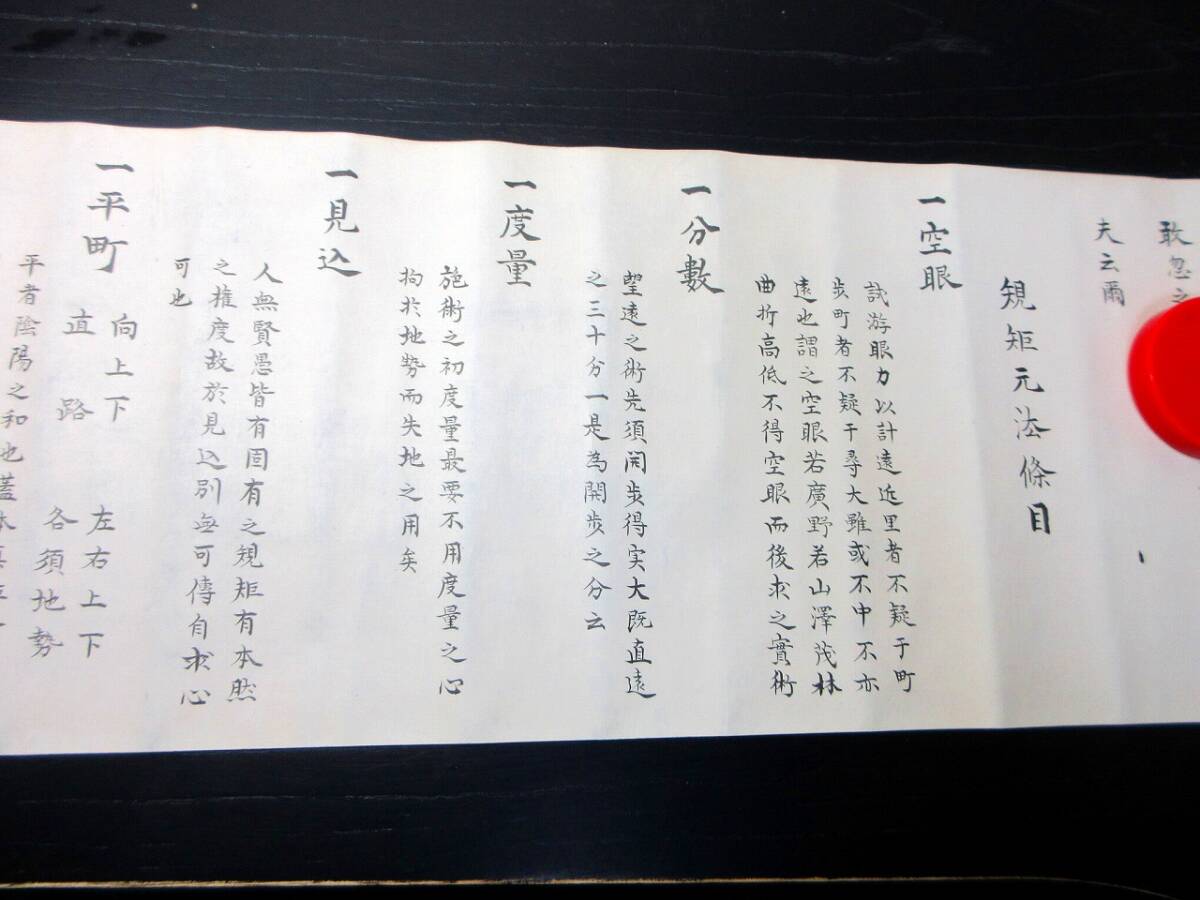 敢忽之
夫云爾
規矩元法條目
一空眼
試游眼力以計遠近里者不疑于町
步町者不疑于尋大雖或不中不亦
遠也謂之空眼若廣野若山澤茂林
曲折高低不得空眼而後求之實術
一分數
望遠之術先須開步得实大既直遠
之三十分一是為開步之分云
一度量
施術之初度量最要不用度量之心
拘於地勢而失地之用矣
一見込
人無賢愚皆有固有之規矩有本然
之権度故於見込別無可傳自求心
可也
一平町
向上下
直路
左右上下
各須地勢
平者陰陽之和也蓋本